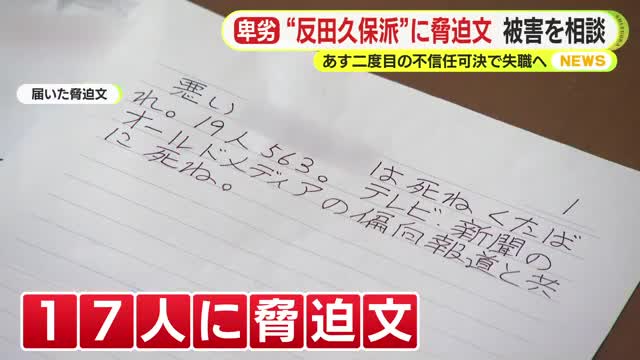 卑劣 “反田久保派”に脅迫文 被害を相談
あす二度目の不信任可決で失職へ NEWS
届いた脅迫文
1
悪い は死ね、くたば
れ。19人563。 テレビ・新聞の
オールドメディアの偏向報道と共
に死ね。
17人に脅迫文